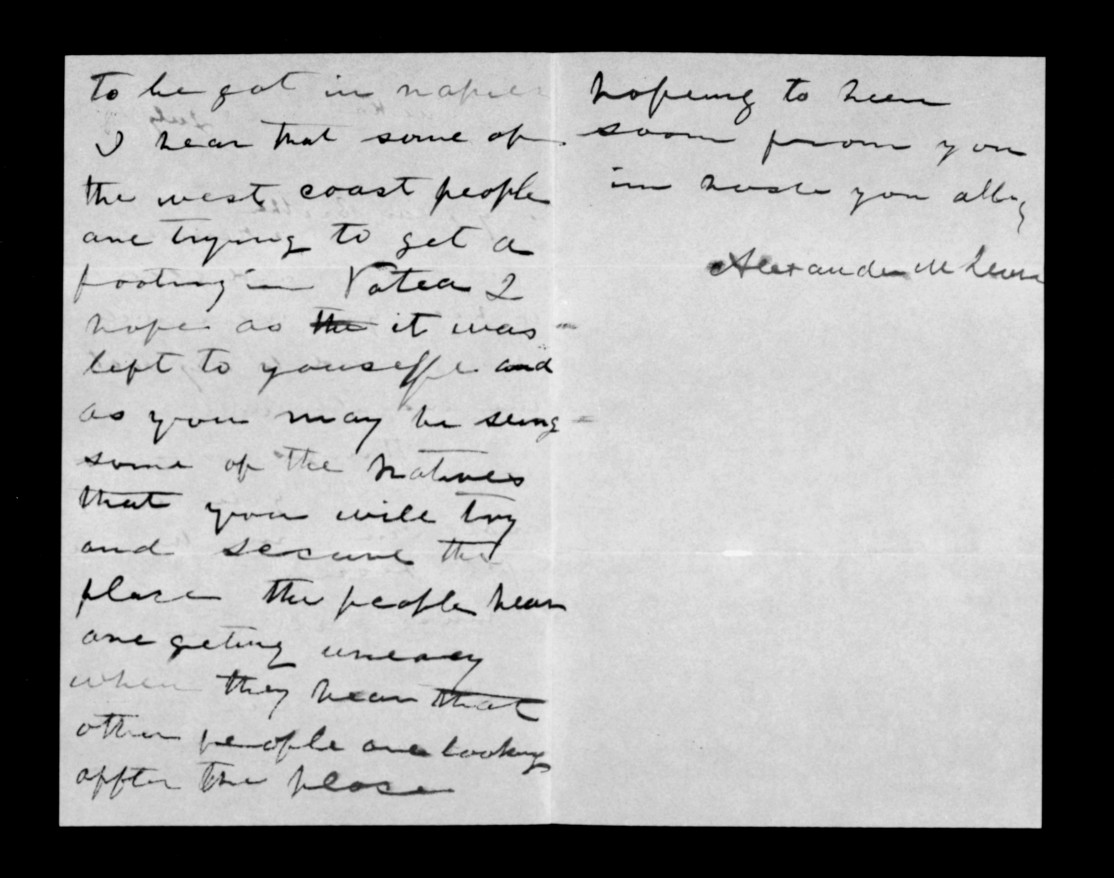 to be got in napier
I hear that some of
the west coast people
are trying to get a
footing in Patea I
hope as the it was
left to youselfe and
as you may be seing
some of the natives
that you will try
and secure the
place the people hear
are geting uneasy
when they hear that
other people are looking
affter the place
hopeing to hear
soon from you
in haste you
Alexander